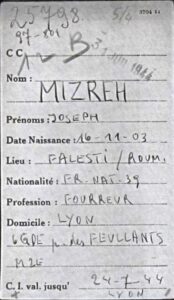 25798. 5/4
97-801 3704 E4
C C B 31 JUIL 1944
Nom :
MIZREH
Prénoms : JOSEPH
Date Naissance : 16-11-03
Lieu : FALESTI / ROUM.
Nationalité : FR. NAT. 39
Profession : FOURREUR
Domicile : LYON
6 GDE R. des FEUILLANTS
24-7-44
C. I. val. jusqu' LYON